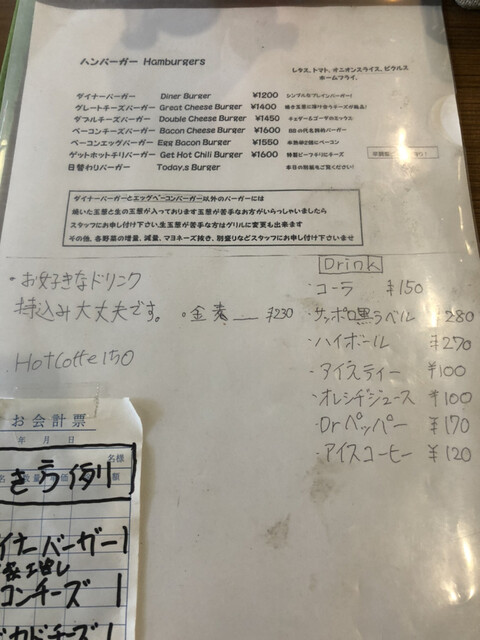 ハンバーガー Hamburgers
レタス、トマト、オニオンスライス、ピクルス
ホームフライ、
ダイナーバーガー Diner Burger ¥1200 シンプルなプレインバーガー!
グレートチーズバーガー Great Cheese Burger ¥1400
ダブルチーズバーガー Double Cheese Burger ¥1450 チェダー&ゴーダのミックス
ベーコンチーズバーガー Bacon Cheese Burger ¥1600 88の代名詞的バーガー
ベーコンエッグバーガー Egg Bacon Burger ¥1550 半熟卵2個にベーコン
ゲットホットチリバーガー Get Hot Chili Burger ¥1600 特製ビーフチリにチーズ
日替わりバーガー Today,s Burger 本日の別紙をご覧ください!
ダイナーバーガーとエッグベーコンバーガー以外のバーガーには
焼いた玉葱と生の玉葱が入っております玉葱が苦手なお方がいらっしゃいましたら
スタッフにお申し付け下さい生玉葱が苦手な方はグリルに変更も出来ます
その他、各野菜の増量、減量、マヨネーズ抜き、別盛りなどスタッフにお申し付け下さいませ
・お好きなドリンク
持込み大丈夫です。
。金麦 ¥230
.Hotcoffe 150
Drink
・コーラ ¥150
・サッポロ黒ラベル ¥280
・ハイボール ¥270
・アイスティー ¥100
・オレンジジュース ¥100
・Drペッパー ¥170
・アイスコーヒー ¥120
お会計票
年 月 日
名様
き方例
イナーバーガー1
コンチーズ 1